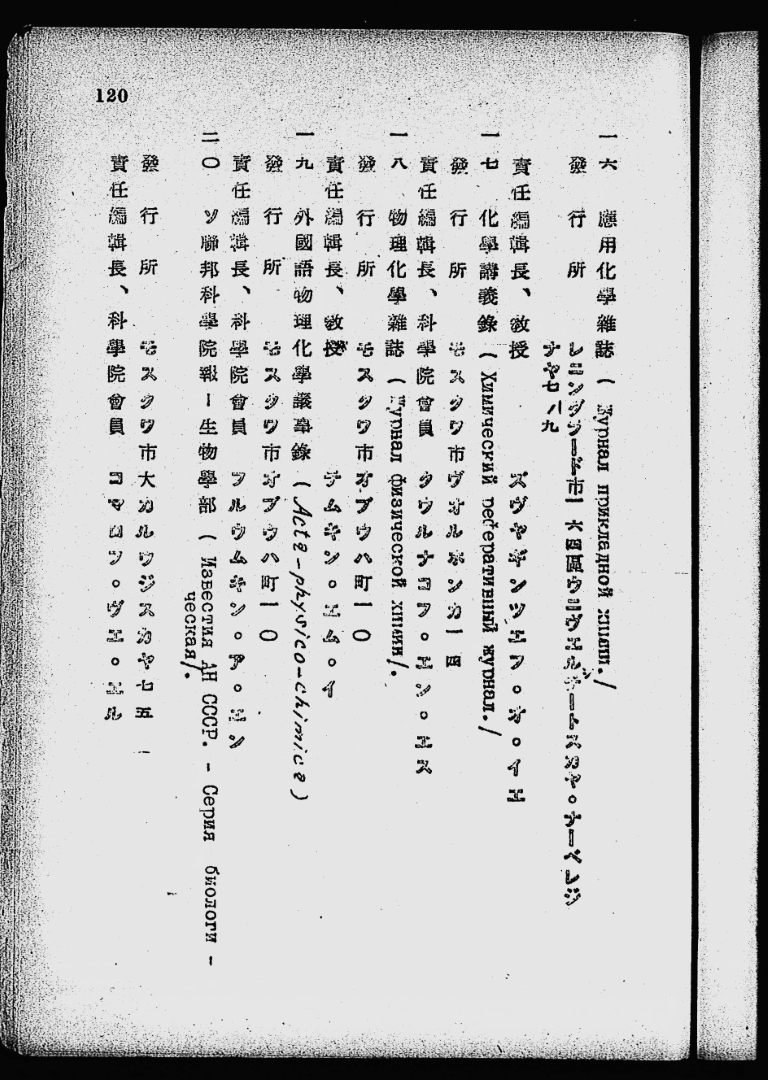 120
一六 應用化學雜誌 (Журнал прикладной химии./
發行所 レニングラード市一六四區ウニヴェルシチートスカヤ。ナーベレジ
ナヤ七/九
責任編輯長、教授 ズヴヤギンツエフ。オ。イエ
一七 化學講義錄 (Химический реферативный журнал./
發行所 モスクワ市ヴオルホンカ一四
責任編輯長、科學院會員 クウルナコフ。エン。エス
一八 物理化學雜誌 (Журнал физической химии/.
發行所 モスクワ市オブウハ町一〇
責任編輯長、教授 テムキン。エム。イ
一九 外國語物理化學議事錄 (Acta-physico-chimica)
發行所 モスクワ市オブウハ町一〇
責任編輯長、科學院會員 フルウムキン。ア。エン
二〇 ソ聯邦科學院報ー生物學部 (Известия АН СССР. - Серия биологи-
ческая/.
發行所 モスクワ市大カルウジスカヤ七五
責任編輯長、科學院會員 コマロフ。ヴエ。エル